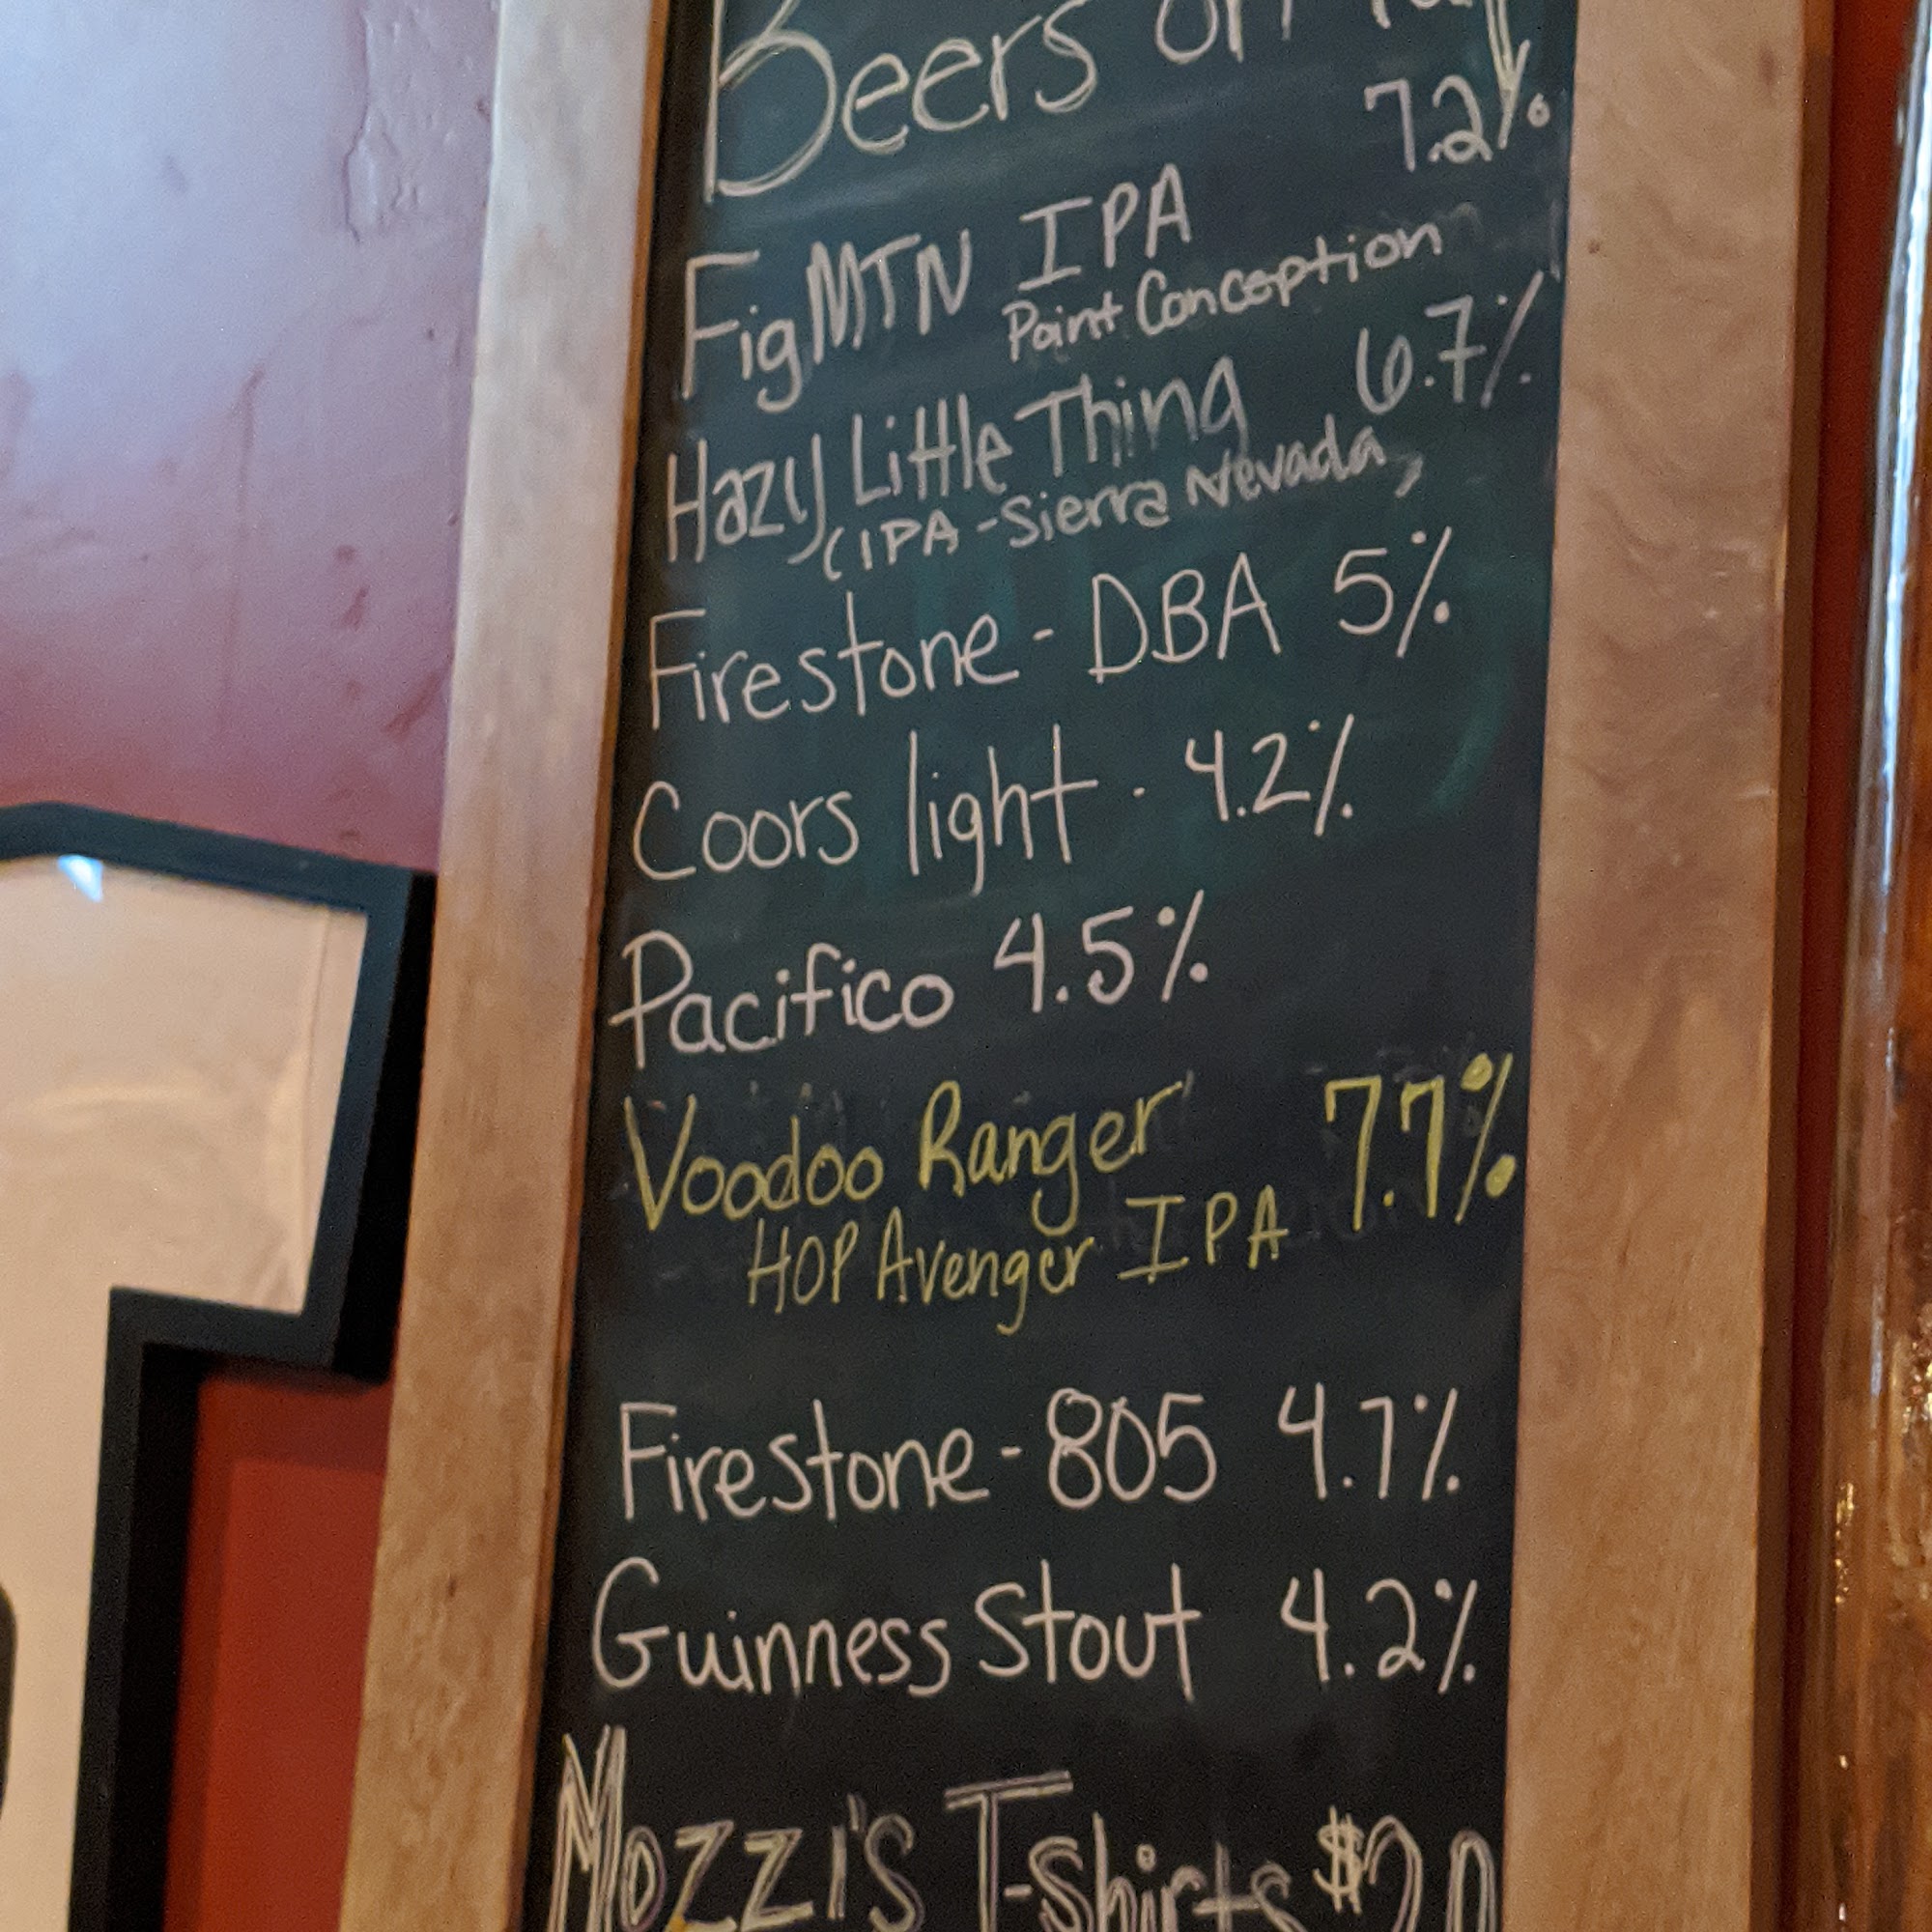 Beers on Tap
7.2%
Fig MTN IPA
Point Conception
Hazy Little Thing 6.7%
(IPA - Sierra Nevada)
Firestone - DBA 5%
Coors light - 4.2%
Pacifico 4.5%
Voodoo Ranger 7.7%
HOP Avenger IPA
Firestone - 805 4.7%
Guinness Stout 4.2%
Mozzi's T-Shirts $20